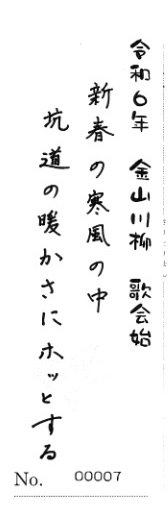 令和6年 金山川柳 歌会始
新春の寒風の中
坑道の暖かさにホッとする
No. 00007